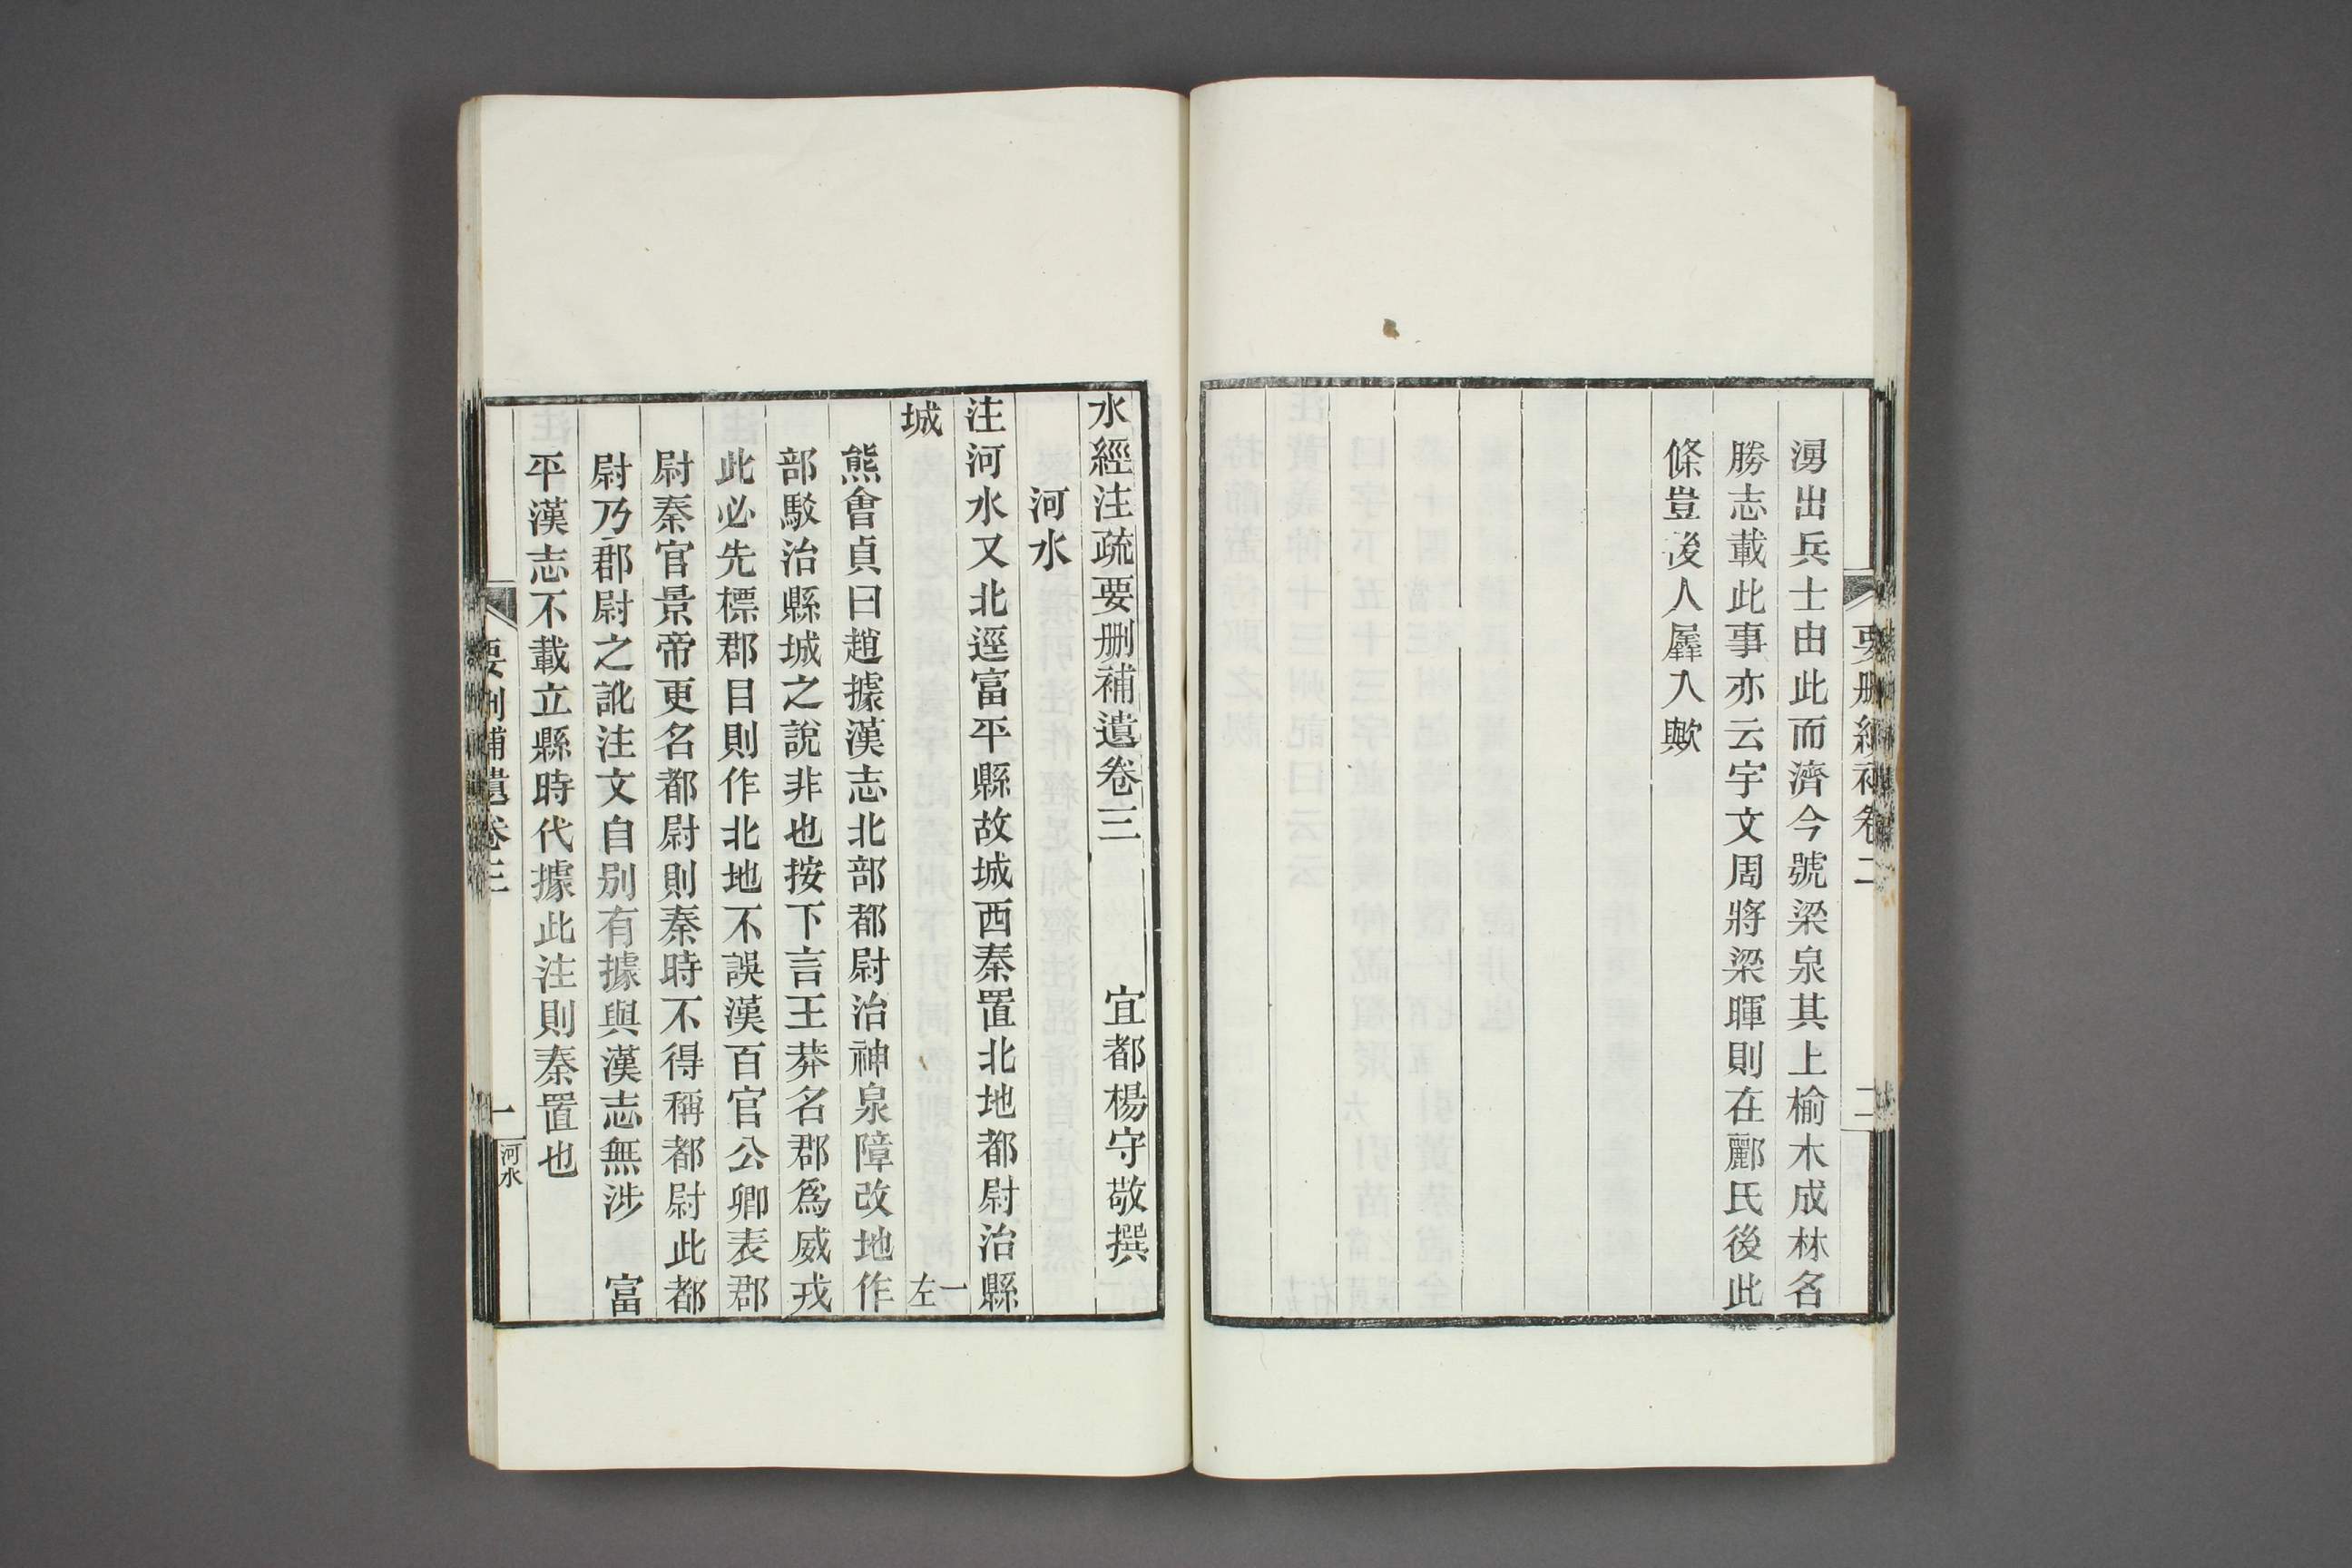 湧出兵士由此而濟今號梁泉其上榆木成林名
勝志載此事亦云宇文周將梁暉則在酈氏後此
條豈後人羼入歟
水經注疏要刪補遺卷三
宜都楊守敬撰
河水
注河水又北逕富平縣故城西秦置北地都尉治縣
城
一左
熊會貞曰趙據漢志北部都尉治神泉障改地作
部駮治縣城之說非也按下言王莽名郡爲威戎
此必先標郡目則作北地不誤漢百官公卿表郡
尉秦官景帝更名都尉則秦時不得稱都尉此都
尉乃郡尉之訛注文自别有據與漢志無涉 富
平漢志不載立縣時代據此注則秦置也
要刪補遺卷三
一
河水